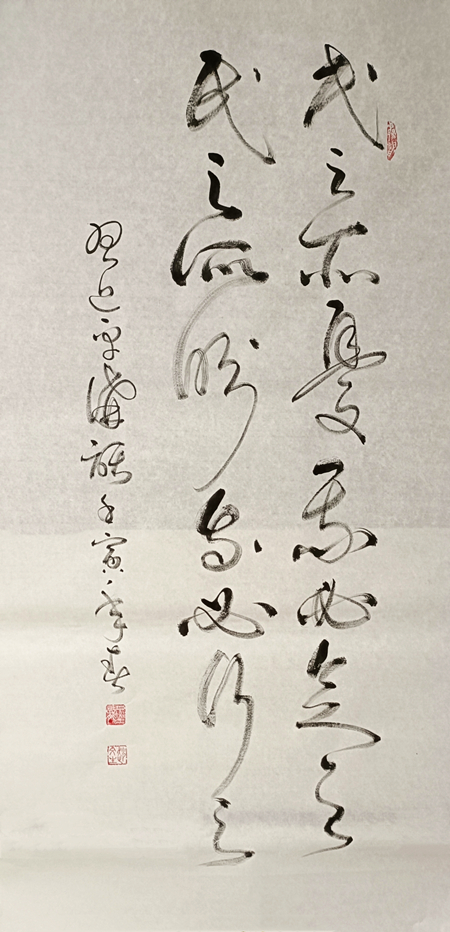 民之所憂我必念之
民之所盼我必行之
習近平講話壬寅年春